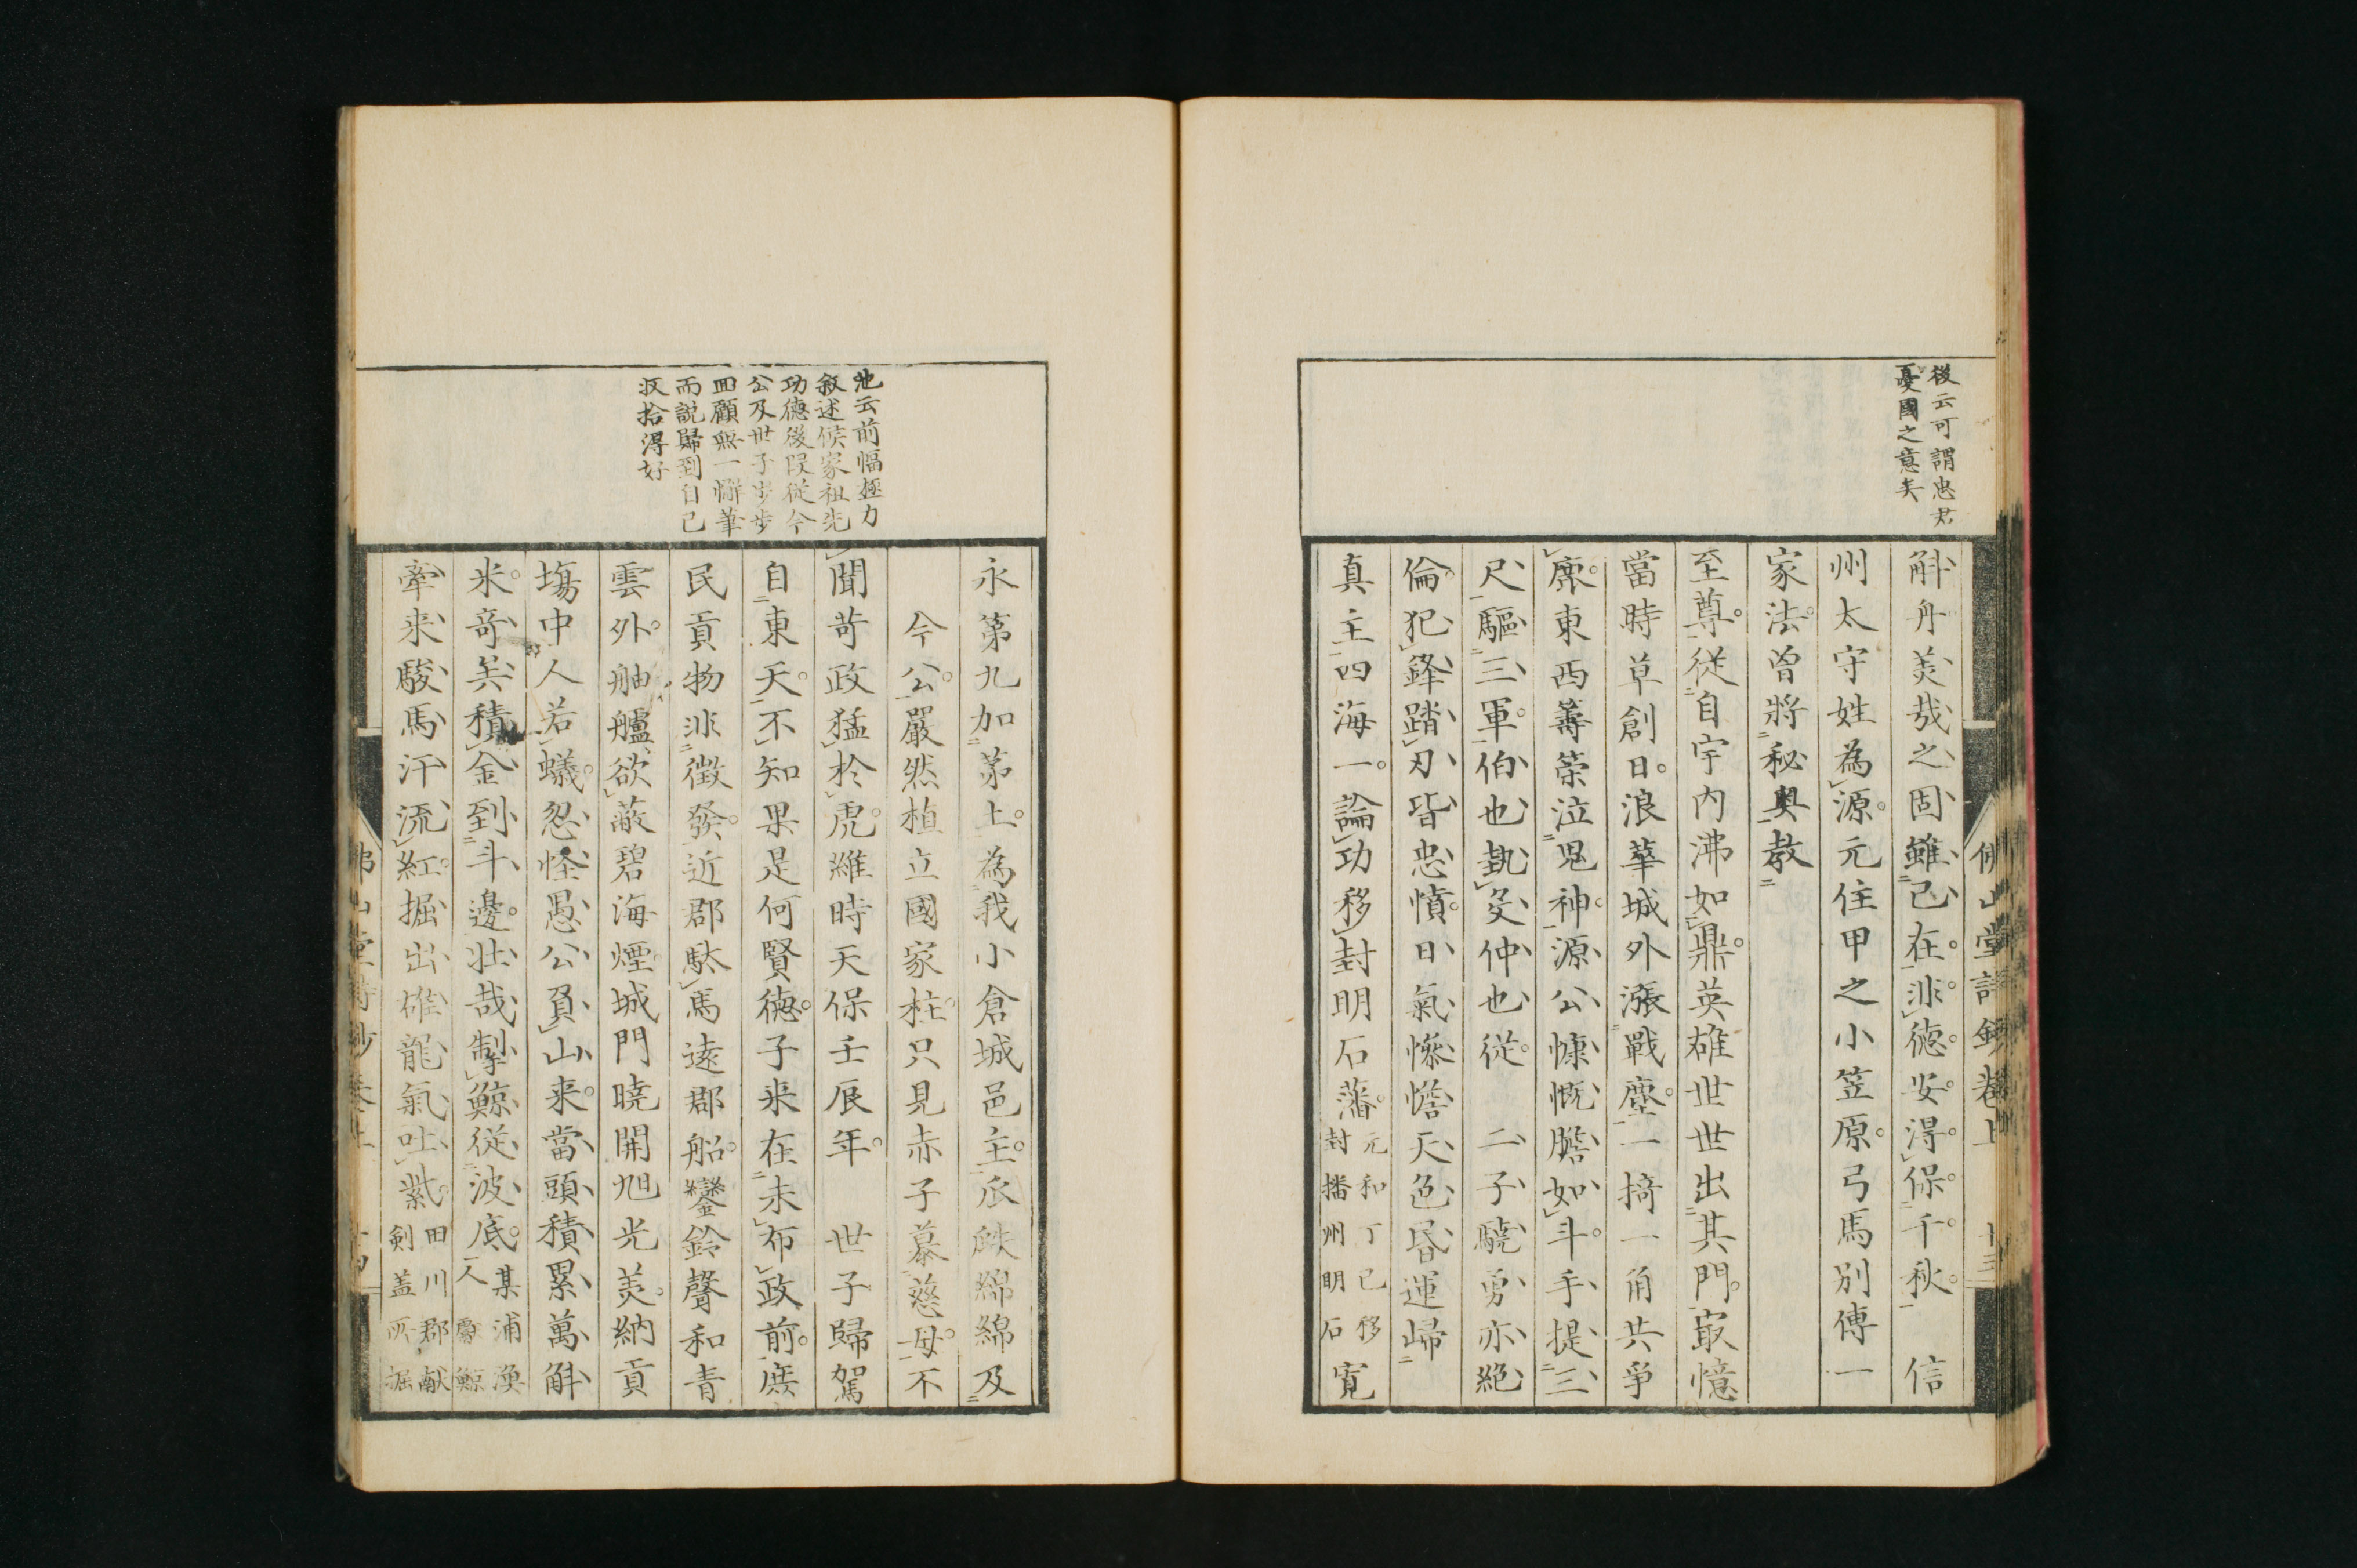 後云可謂忠君
憂國之意矣
斛舟美哉之固雖已在非德安得保千秋　信
州太守姓為源元住甲之小笠原弓馬別傳一
家法曾將秘奥教
至尊從自宇内沸如鼎英雄世世出其門冣憶
當時草創日浪華城外漲戰塵一掎一角共爭
鹿東西蓴榮泣鬼神源公慷慨膽如斗手提三
尺驅三軍伯也執殳仲也從　二子驍勇亦絶
倫犯鋒踏刃皆忠憤日氣慘憺天色昏運歸
真主四海一論功移封明石藩元和丁巳移封播州明石寛
佛山堂詩鈔卷上　十三
池云前幅極力
敘述候家祖先
功德後段從今
公及世子步步
回顧無一懈筆
而説歸到自己
収拾得好
永第九加茅土為我小倉城邑主瓜瓞綿綿及
今公嚴然植立國家柱只見赤子慕慈母不
聞苛政猛於虎維時天保壬辰年　世子歸駕
自東天不知果是何賢德子来在未布政前庶
民貢物非徴發近郡駄馬遠郡船鑾鈴聲和青
雲外舳艫欲蔽碧海煙城門曉開旭光美納貢
塲中人若蟻忽怪愚公負山来當頭積累萬斛
米竒矣積金到斗邊壯哉掣鯨從波底某浦漁人䬵鯨
牽来駿馬汗流紅掘出雄龍氣吐紫田川郡献剣盖所掘
佛山堂詩鈔卷上　十四